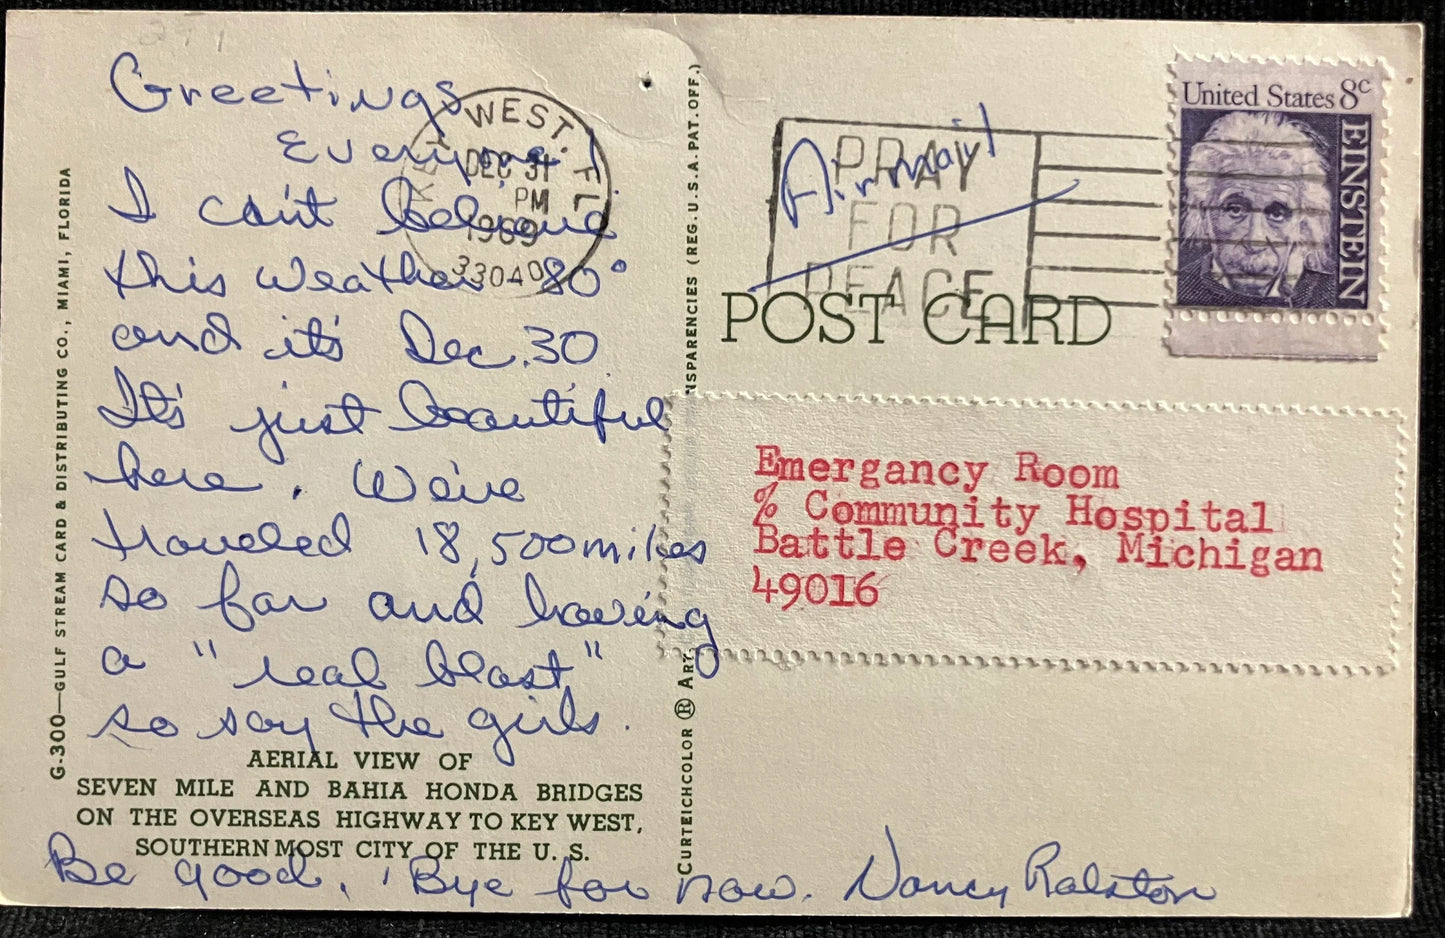 271
Greetings
Everyone!
I can't believe
this weather 80°
and it's Dec. 30
It's just beautiful
here. We've
traveled 18,500 miles
so far and having
a "real blast"
so say the girls.
AERIAL VIEW OF
SEVEN MILE AND BAHIA HONDA BRIDGES
ON THE OVERSEAS HIGHWAY TO KEY WEST,
SOUTHERNMOST CITY OF THE U. S.
Be good. 'Bye for now. Nancy Ralston
G-300—GULF STREAM CARD & DISTRIBUTING CO., MIAMI, FLORIDA
CURTEICHCOLOR ® ART
NSPARENCIES (REG. U.S.A. PAT. OFF.)
WEST, FL
DEC 31
PM
1969
33040
PRAY
FOR
PEACE
Airmail
POST CARD
United States 8c
EINSTEIN
Emergancy Room
% Community Hospital
Battle Creek, Michigan
49016